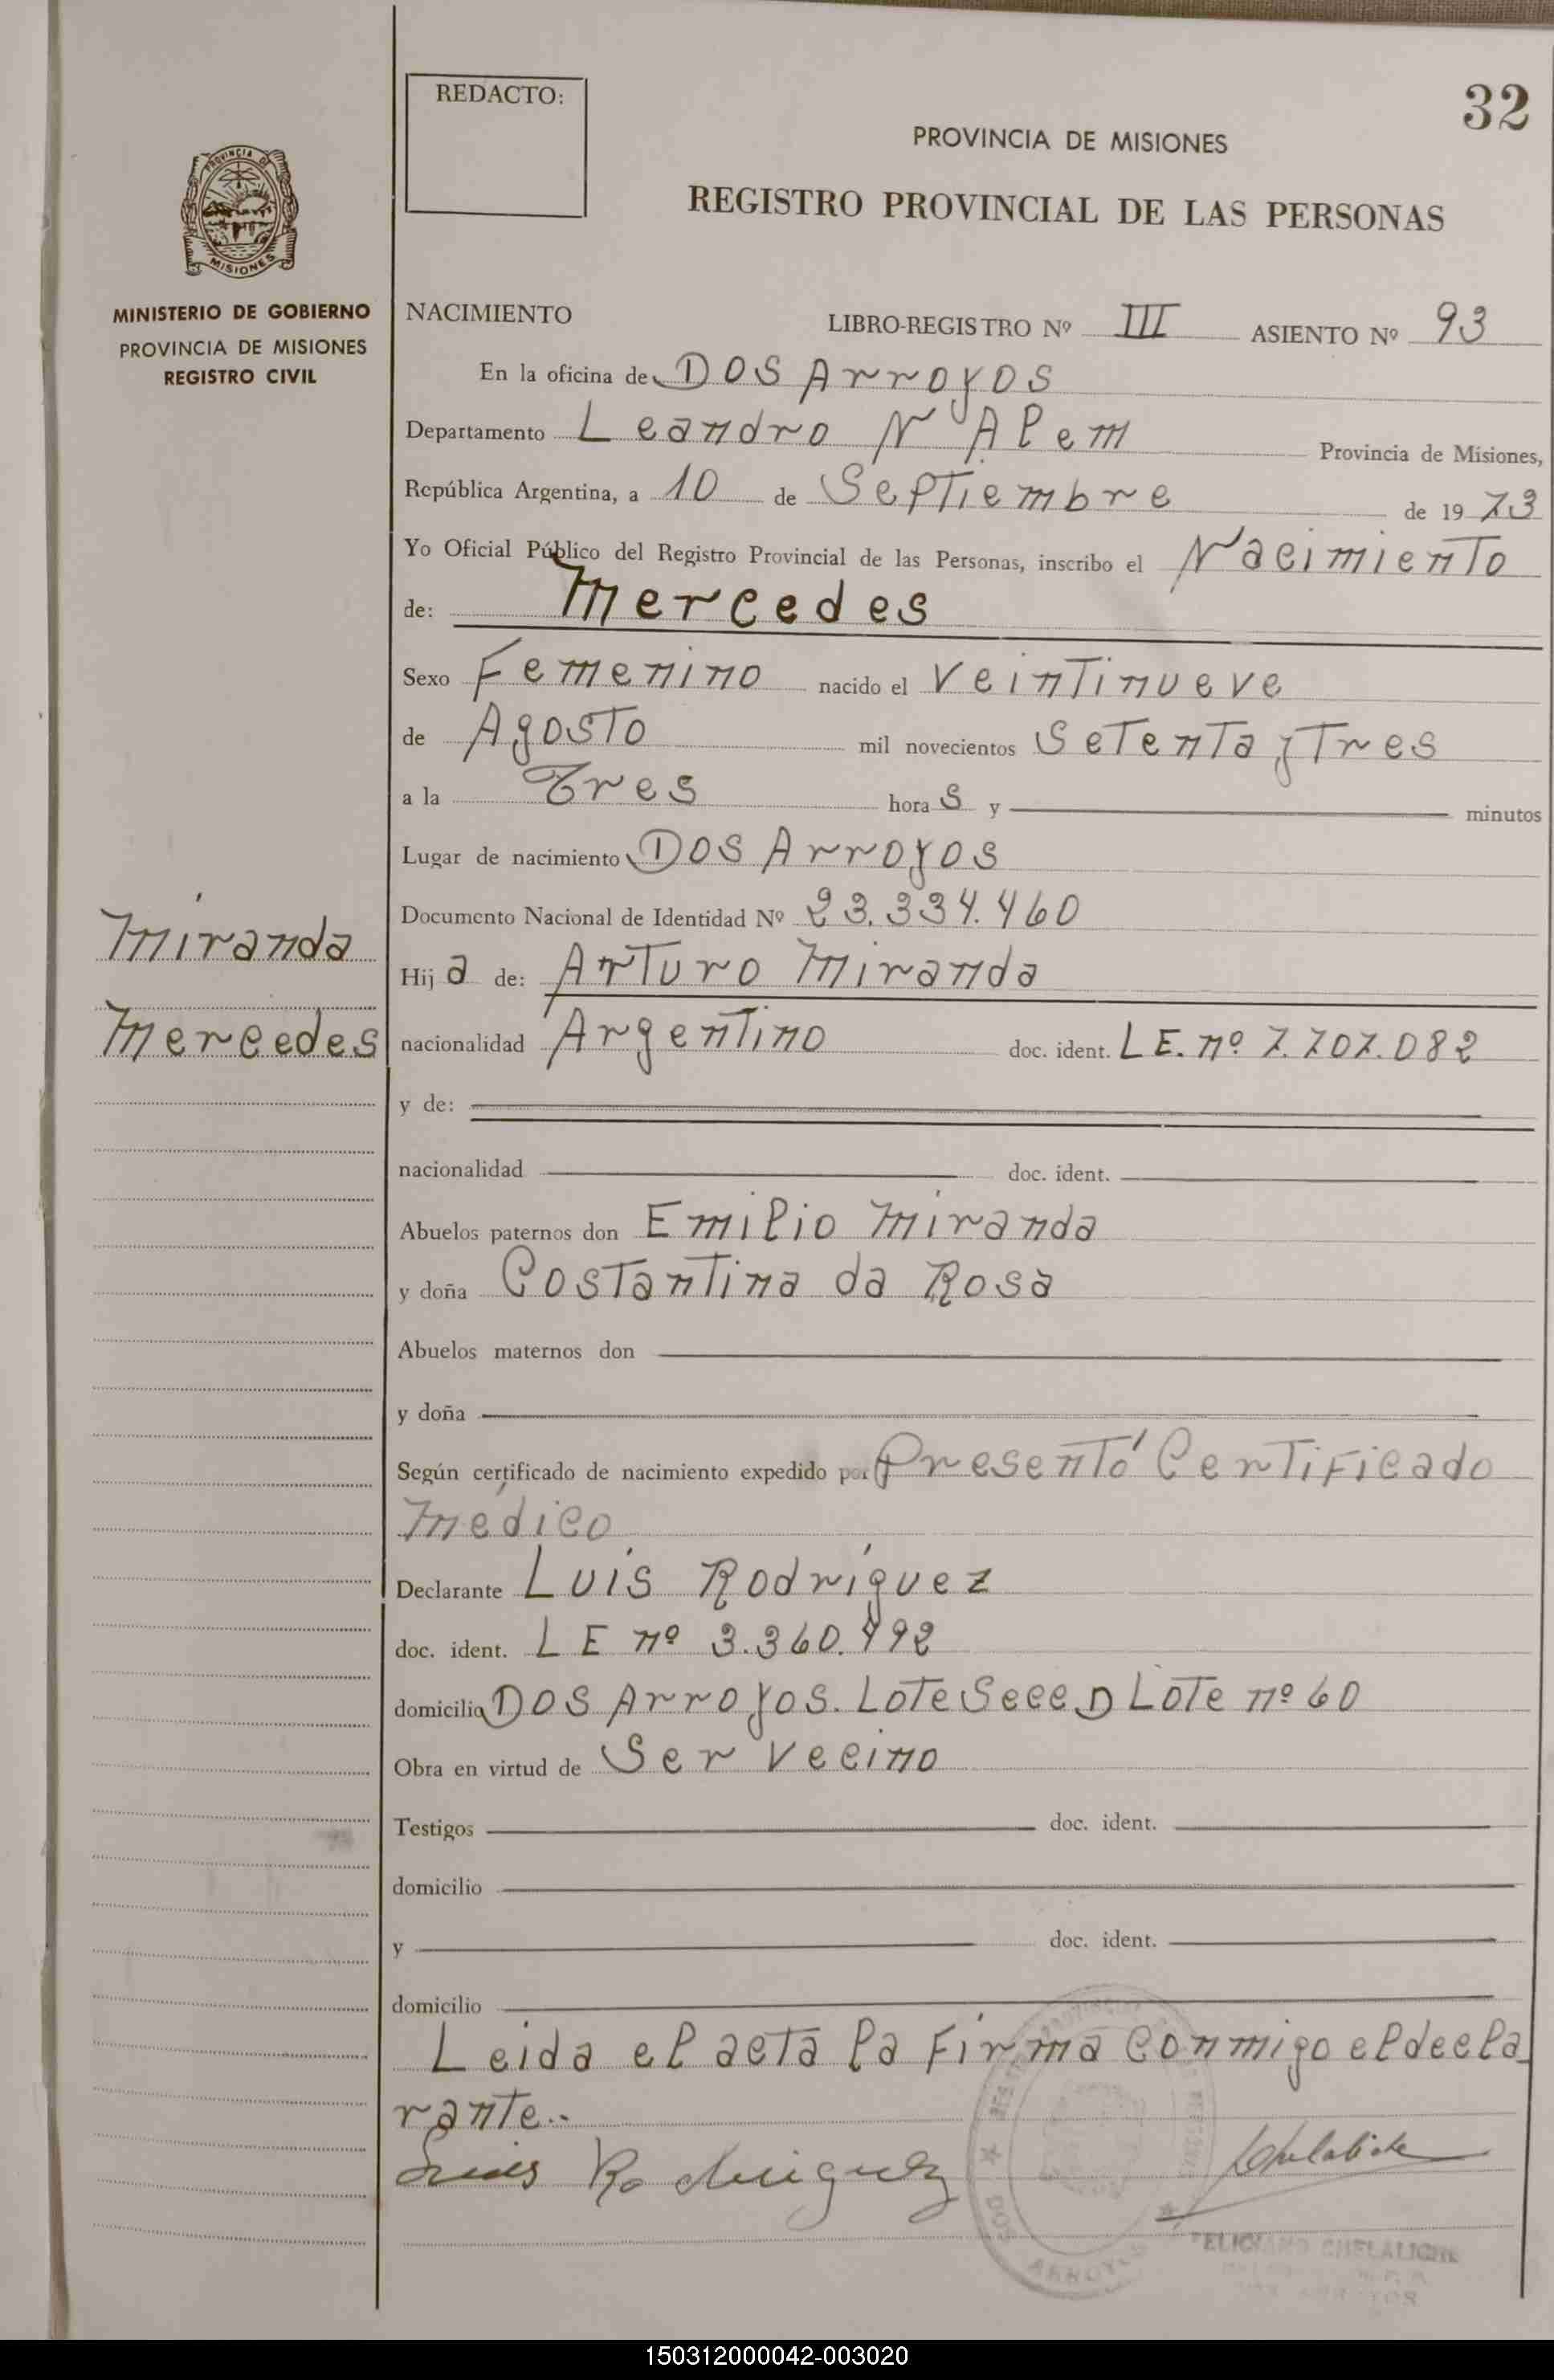 32
REDACTO:
PROVINCIA DE MISIONES
REGISTRO PROVINCIAL DE LAS PERSONAS
PROVINCIA DE
MISIONES
MINISTERIO DE GOBIERNO
PROVINCIA DE MISIONES
REGISTRO CIVIL
NACIMIENTO LIBRO-REGISTRO Nº III ASIENTO Nº 93
En la oficina de Dos Arroyos
Departamento Leandro N Alem Provincia de Misiones,
República Argentina, a 10 de Septiembre de 1973
Yo Oficial Público del Registro Provincial de las Personas, inscribo el Nacimiento
de: Mercedes
Sexo Femenino nacido el Veintinueve
de Agosto mil novecientos Setenta y Tres
a la Tres hora s y minutos
Lugar de nacimiento Dos Arroyos
Documento Nacional de Identidad Nº 23.334.460
Miranda
Hij a de: Arturo Miranda
Mercedes
nacionalidad Argentino doc. ident. LE. nº 7.707.082
y de:
nacionalidad doc. ident.
Abuelos paternos don Emilio Miranda
y doña Costantina da Rosa
Abuelos maternos don
y doña
Según certificado de nacimiento expedido por Presentó Certificado
Médico
Declarante Luis Rodríguez
doc. ident. LE nº 3.360.492
domicilio Dos Arroyos. Lote Secc D Lote nº 60
Obra en virtud de Ser Vecino
Testigos doc. ident.
domicilio
y doc. ident.
domicilio
Leida el acta la Firma Conmigo el decla
rante..
Luis Rodriguez
DOS ARROYOS
FELICIANO CHELALICHE
150312000042-003020